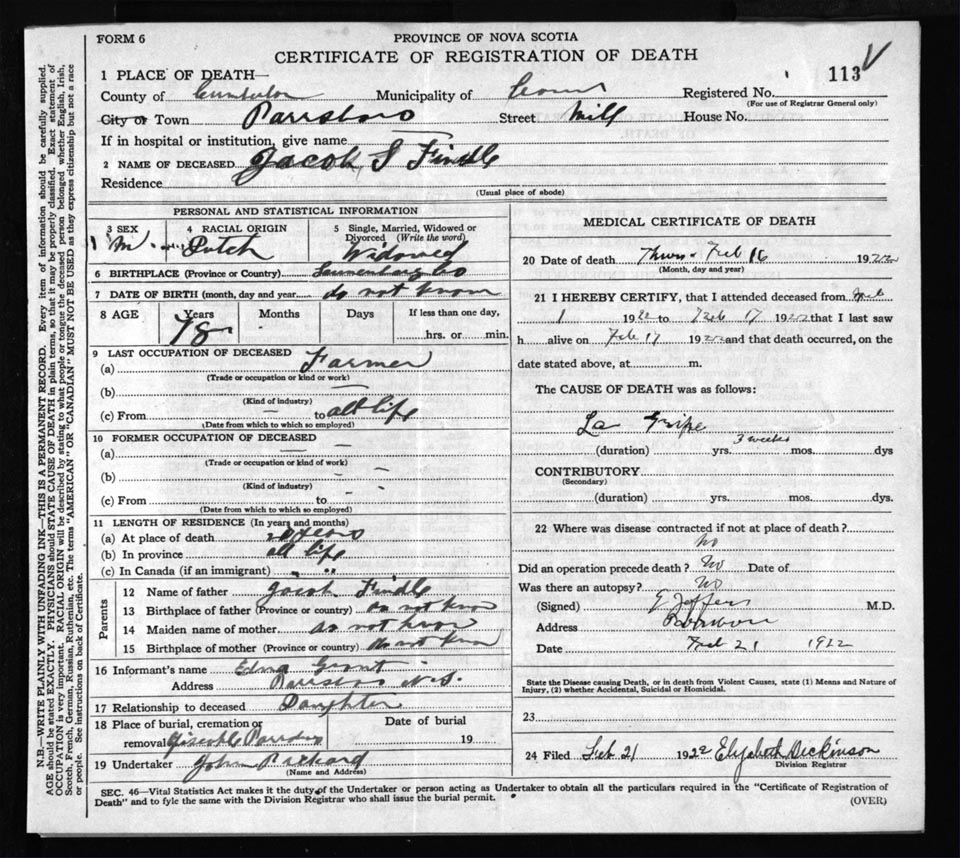 FORM 6
PROVINCE OF NOVA SCOTIA
CERTIFICATE OF REGISTRATION OF DEATH
113
1 PLACE OF DEATH—
County of Cumberland Municipality of Registered No.
(For use of Registrar General only)
City or Town Parrsboro Street Mill House No.
If in hospital or institution, give name
2 NAME OF DECEASED Jacob S Findle
Residence
(Usual place of abode)
PERSONAL AND STATISTICAL INFORMATION
3 SEX 4 RACIAL ORIGIN 5 Single, Married, Widowed or Divorced (Write the word)
M. Dutch Widowed
6 BIRTHPLACE (Province or Country) Lunenburg Co
7 DATE OF BIRTH (month, day and year) do not know
8 AGE Years Months Days If less than one day,
78 - hrs. or min.
9 LAST OCCUPATION OF DECEASED
(a) Farmer
(Trade or occupation or kind of work)
(b)
(Kind of industry)
(c) From — to all life
(Date from which to which so employed)
10 FORMER OCCUPATION OF DECEASED —
(a) —
(Trade or occupation or kind of work)
(b) - -
(Kind of industry)
(c) From to - -
(Date from which to which so employed)
11 LENGTH OF RESIDENCE (In years and months)
(a) At place of death years
(b) In province all life
(c) In Canada (if an immigrant) " "
Parents
12 Name of father Jacob Findle
13 Birthplace of father (Province or country) do not know
14 Maiden name of mother do not know
15 Birthplace of mother (Province or country) do not know
16 Informant's name Edna Grant
Address Parrsboro N.S.
17 Relationship to deceased Daughter
18 Place of burial, cremation or removal Date of burial 19
19 Undertaker John Rickard
(Name and Address)
MEDICAL CERTIFICATE OF DEATH
20 Date of death Thurs. Feb 16 1922
(Month, day and year)
21 I HEREBY CERTIFY, that I attended deceased from Feb
1 1922 to Feb 17 1922 that I last saw
h alive on Feb 17 1922 and that death occurred, on the
date stated above, at m.
The CAUSE OF DEATH was as follows:
La Grippe
3 weeks
(duration) yrs. mos. dys
CONTRIBUTORY
(Secondary)
(duration) yrs. mos. dys.
22 Where was disease contracted if not at place of death?
no
Did an operation precede death? No Date of
Was there an autopsy? No
(Signed) M.D.
Address Parrsboro
Date Feb 21 1922
State the Disease causing Death, or in death from Violent Causes, state (1) Means and Nature of
Injury, (2) whether Accidental, Suicidal or Homicidal.
23
24 Filed Feb 21 1922 Elizabeth Dickinson
Division Registrar
SEC. 46—Vital Statistics Act makes it the duty of the Undertaker or person acting as Undertaker to obtain all the particulars required in the "Certificate of Registration of
Death" and to fyle the same with the Division Registrar who shall issue the burial permit.
(OVER)
N.B.—WRITE PLAINLY WITH UNFADING INK—THIS IS A PERMANENT RECORD. Every item of information should be carefully supplied.
AGE should be stated EXACTLY. PHYSICIANS should STATE CAUSE OF DEATH in plain terms, so that it may be properly classified. Exact statement of
OCCUPATION is very important. RACIAL ORIGIN will be described by stating to what people or tongue the deceased person belonged whether English, Irish,
Scotch, French, German, Russian, Ruthenian, etc. The terms "AMERICAN" OR "CANADIAN" MUST NOT BE USED as they express citizenship but not a race
or people. See instructions on back of Certificate.